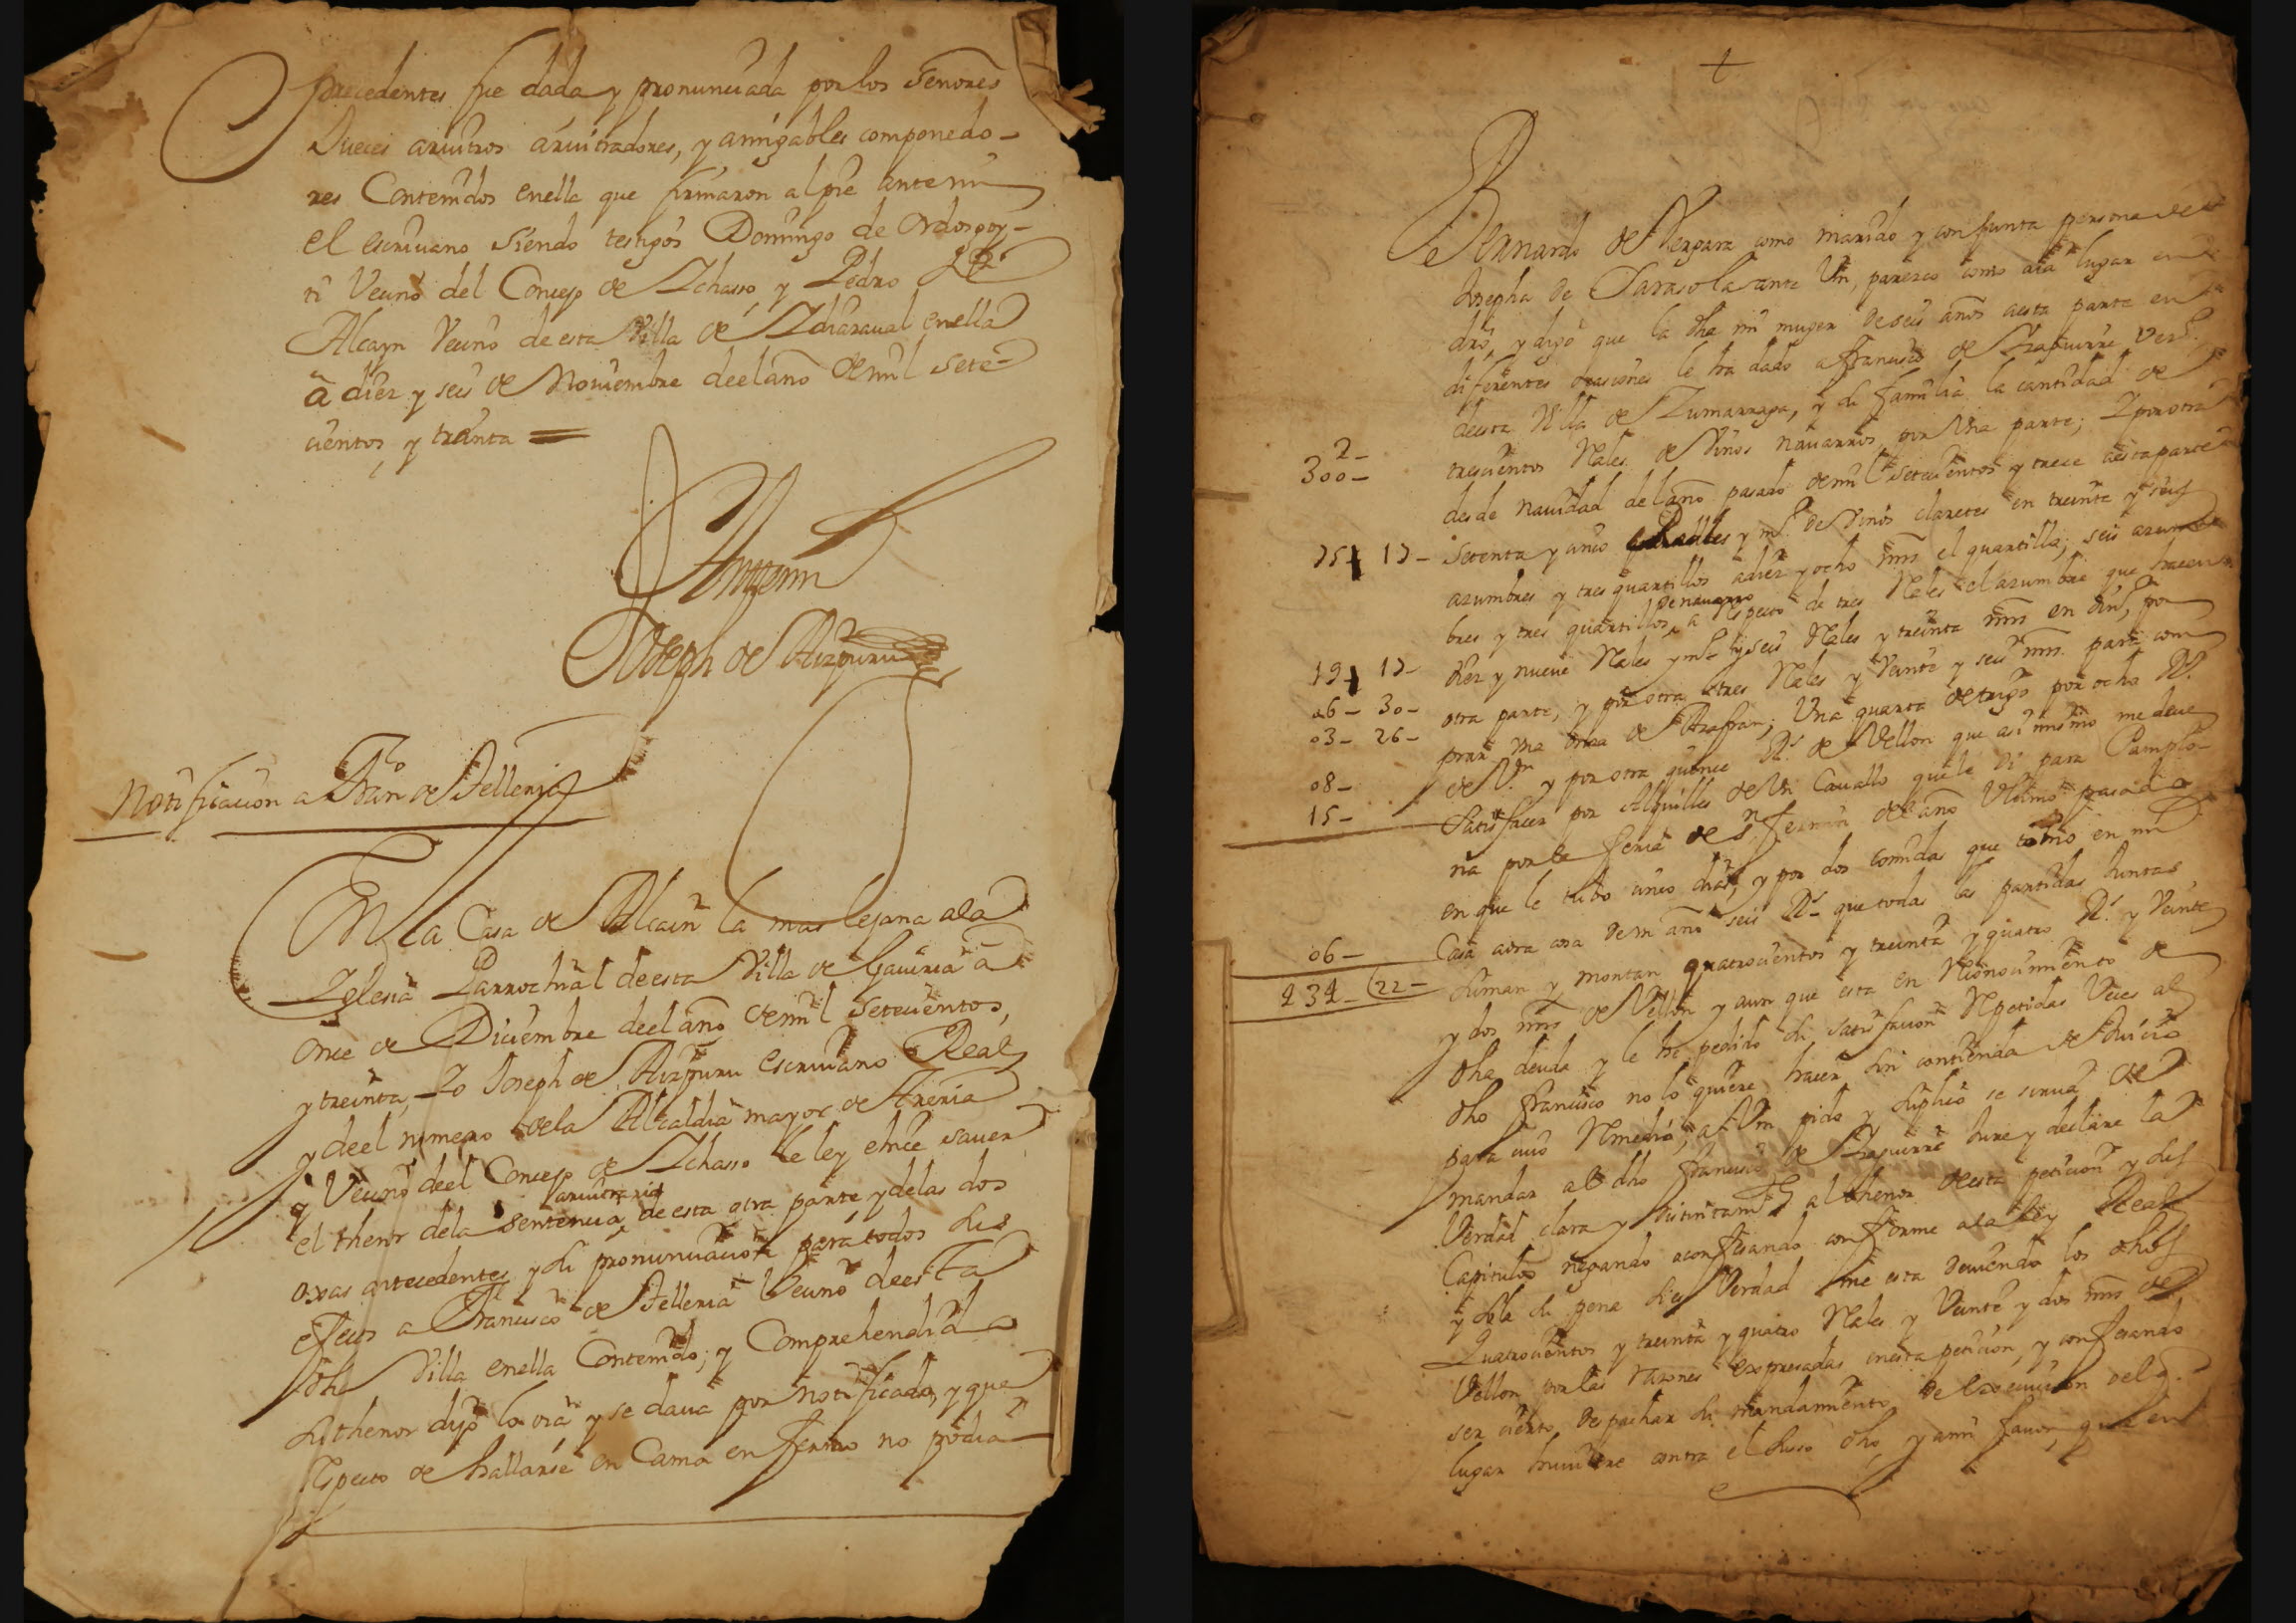 precedentes fue dada y pronunciada por los señores
Jueces aruitros aruitradores, y amigables componedo-
res Contenidos enella que firmaron al pie ante mi
el escriuano siendo testigos Domingo de Ordosgoy-
ti Vecino del Concejo de Ichasso, y Pedro
Alcayn Vecino de esta Villa de Idiazaual enella
à diez y seis de Nouiembre deel año de mil sete-
cientos, y treinta =
Ante mi
Joseph de Aizpuru
Notificacion a Fran.co de Telleria
En la Casa de Alcain la mas lejana ala
Iglesia Parrochial de esta Villa de Gauiria à
once de Diciembre deel año de mil setecientos,
y treinta, Yo Joseph de Aizpuru escriuano Real
y deel numero dela Alcaldia mayor de Areria
y Vecino deel Concejo de Ichasso le ley e hice sauer
aruitraria
el thenor dela sentencia, de esta otra parte y delas dos
oxas antecedentes, y su pronunciacion para todos sus
efectos a Francisco de Telleria Vecino de esta
dha Villa enella Contenido; y Comprehendida
su thenor dijo la oia y se daua por notificado, y que
respecto de hallarse en Cama enfermo no podia
+
Bernardo de Vergara como marido y conjunta persona de
Josepha de Sarasola ante Vm, parezco como aia lugar en
dro, y digo que la dha mi muger de seis años aesta parte en
diferentes ocasiones le ha dado a Francisco de Yzaguirre vez.o
deesta Villa de Zumarraga, y su familia la cantidad de
300- trescientos Reales de Vinos nauarros por Vna parte; Y por otra
desde nauidad del año pasado de mil setecientos y trece aesta parte
75- 17- setenta y cinco Reales y m.o de Vinos claretes en treinta y seis
azumbres y tres quartillos adiez y ocho mrs el quartillo; seis azum
de nauarro
bres y tres quartillos, a respecto de tres Reales el azumbre que hacen
19- 17- diez y nueue Reales y m.o y seis Reales y treinta mrs en din.o, por
06- 30- otra parte, y por otra tres Reales y Veinte y seis mrs. para com
03- 26- prar Vna onza de Azafran; Vna quarta de trigo por ocho R.s
08- de V.n y por otra quince R.s de Vellon que asi mismo me deue
15- Satisfacer por Alquiller de Vn Cauallo que le di para Pamplo
na por la feria de S.n fermin del año Vltimo pasado
en que le tubo cinco dias, y por dos comidas que tomo en mi
06- Casa aora cosa de m año seis R.s que todas las partidas Juntas
434- 22- suman y montan quatrocientos y treinta y quatro R.s y Veinte
y dos mrs de Vellon y aun que esta en Reconocimiento de
dha deuda y le he pedido su satisfacion Repetidas Veces al
dho francisco no lo quiere hacer sin contienda de Juicio
para cuio Remedio, a Vm pido y suplico se sirua de
mandar al dho francisco de Yzaguirre Jure y declare la
Verdad clara y distintam.te al thenor de esta peticion y sus
Capitulos negando o confesando conforme ala ley Real
y sola su pena si es Verdad me esta deuiendo los dhos
Quatrocientos y treinta y quatro Reales y Veinte y dos mrs de
Vellon por las razones expresadas enesta peticion, y confesando
ser cierto, despachar su mandamiento de execucion del q.e
lugar huuiere contra el suso dho, y ami fauor, que en